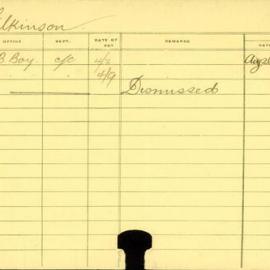 ilkinson
OFFICE DEPT. DATE OF PAY REMARKS DATE
B Boy. c/c 4/2 Aug
4/9 Dismissed